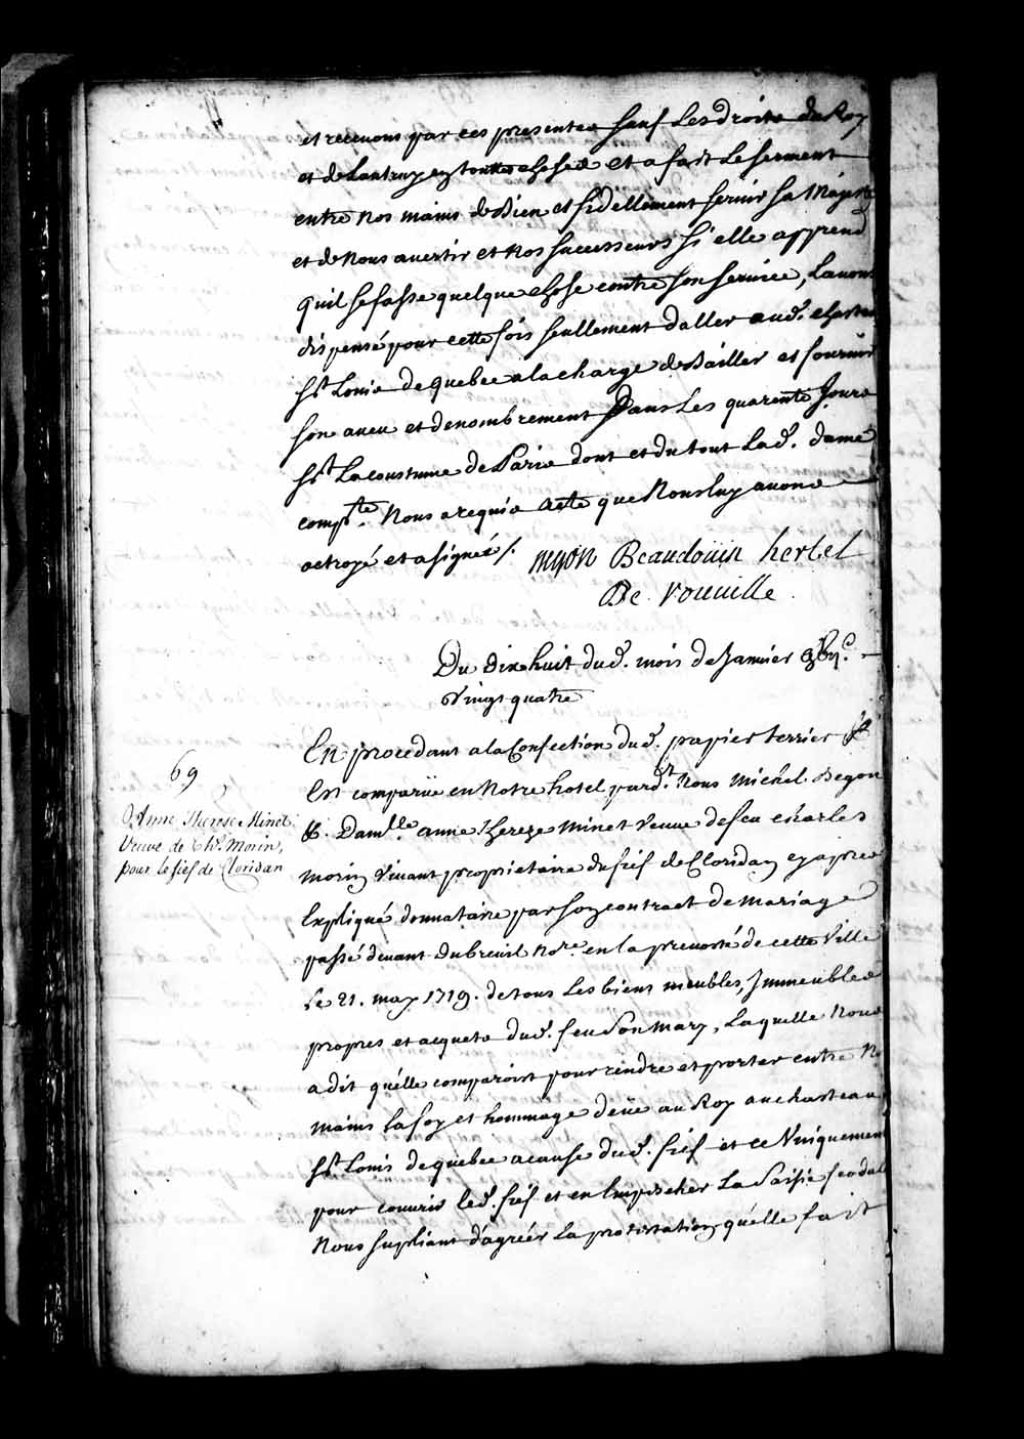 et recevons par ces presentes sauf Les droits du Roy
et de Lautruy en touttes choses et a fait Le serment
entre nos mains de Bien et fidellement servir sa Majesté
et de Nous avertir et Nos successeurs si elle apprend
quil se fasse quelque chose contre son service, Lavons
dispensé pour cette fois seullement d'aller aud. chasteau
St. Louis de quebec a la charge de Bailler et fournir
son aveu et denombrement Dans Les quarente Jours
St. La coustume de Paris dont et du tout Lad. dame
compte. Nous a requis acte que Nous luy avons
octroyé et a signé /. Beaudoüin hertel
De Rouuille
Du dix huit dud. mois de Janvier
vingt quatre
69
Anne Therese Minet
Veuve de Ch. Morin,
pour le fief de Cloridan
En procedant a la Confection dud. papier terrier
Est comparüe en Notre hotel pard.t Nous Michel Begon
&. Dam.lle anne Thereze Minet veuve de feu charles
morin vivant proprietaire du fief de Cloridan cy apres
Expliqué donnataire par son contract de mariage
passé devant Dubreuil No.re en la prevosté de cette Ville
Le 21. may 1719. de tous Les biens meubles, Immeubles
propres et acquets dud. feu son mary, Laquelle Nous
a dit qu'elle comparoist pour rendre et porter entre No
mains La foy et hommage deüe au Roy au chasteau
St. Louis de quebec a cause dud. fief et ce Vniquement
pour couvrir led. fief et en Empescher La Saisie feodal
Nous supliant d'agréer La protestation qu'elle fait